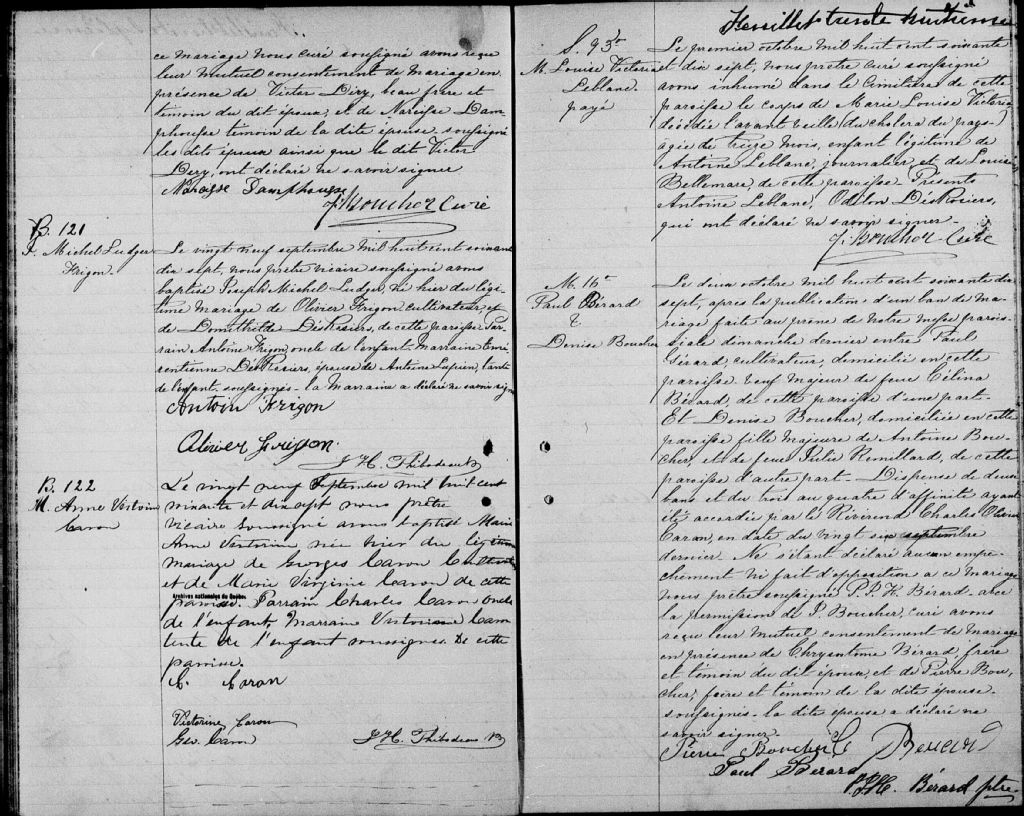 ce mariage nous curé soussigné avons reçu
leur mutuel consentement de mariage en
présence de Victor Déry, beau frère et
témoin du dit époux, et de Narcisse Dam-
phousse témoin de la dite épouse, soussigné
les dits époux ainsi que le dit Victor
Dery, ont déclaré ne savoir signer
Narcisse Damphousse
J. Boucher Curé
B. 121
J. Michel Ludger
Frigon
Le vingt neuf septembre mil huit cent soixante
dix sept, nous prêtre vicaire soussigné avons
baptisé Joseph Michel Ludger, né hier du légi-
time mariage de Olivier Frigon cultivateur, et
de Domithilde DesRosiers, de cette paroisse Par-
rain Antoine Frigon, oncle de l'enfant Marraine Emé-
rentienne DesRosiers, épouse de Antoine Lupien, tante
de l'enfant soussignés - la Marraine a déclaré ne savoir sign
Antoin Frigon
Olivier Frigon
J. H. Thibodeau
B. 122
M. Anne Victorine
Caron
Le vingt neuf Septembre mil huit cent
soixante et dix sept nous prêtre
vicaire soussigné avons baptisé Marie
Anne Victorine née hier du légitime
mariage de Georges Caron Cultivateur
et de Marie Virginie Caron de cette
Archives nationales du Québec
paroisse. Parrain Charles Caron oncle
de l'enfant. Marraine Victorine Caron
tente de l'enfant soussignés De cette
paroisse.
C. Caron
Victorine Caron
Geo. Caron
J. H. Thibodeau
Feuillet trente huitième
S. 93e
M. Louise Victoria
Leblanc
payé
Le premier octobre mil huit cent soixante
et dix sept, nous prêtre curé soussigné
avons inhumé dans le cimetière de cette
paroisse le corps de Marie Louise Victoria
décédée l'avant veille du choléra du pays
agée de treize mois, enfant légitime de
Antoine Leblanc, journalier, et de Louise
Bellemare, de cette paroisse. Présents
Antoine Leblanc, Odilon DesRosiers,
qui ont déclaré ne savoir signer.
J. Boucher Curé
M. 16e
Paul Bérard
&
Denise Boucher
Le deux octobre mil huit cent soixante dix
sept, après la publication d'un ban de ma-
riage faite au prône de notre messe parois-
siale dimanche dernier entre Paul
Bérard, cultivateur, domicilié en cette
paroisse veuf majeur de feue Célina
Bérard, de cette paroisse d'une part.
Et Denise Boucher, domiciliée en cette
paroisse fille majeure de Antoine Bou-
cher, et de feue Julie Remillard, de cette
paroisse d'autre part - Dispense de deux
bans et du trois au quatre d'affinité ayant
été accordée par le Révérend Charles Olivier
Caron, en date du vingt six septembre
dernier. Ne s'étant déclaré aucun empe-
chement ni fait d'opposition a ce mariage
nous prêtre soussigné P.P.H. Bérard - avec
la permission de J. Boucher, curé avons
reçu leur mutuel consentement de mariage
en présence de Chrysostôme Bérard, frère
et témoin du dit époux, et de Pierre Bou-
cher, frère et témoin de la dite épouse
soussignés - la dite épouse a déclaré ne
savoir signer
Pierre Boucher C Berard
Paul Berard
P.P.H. Bérard ptre.